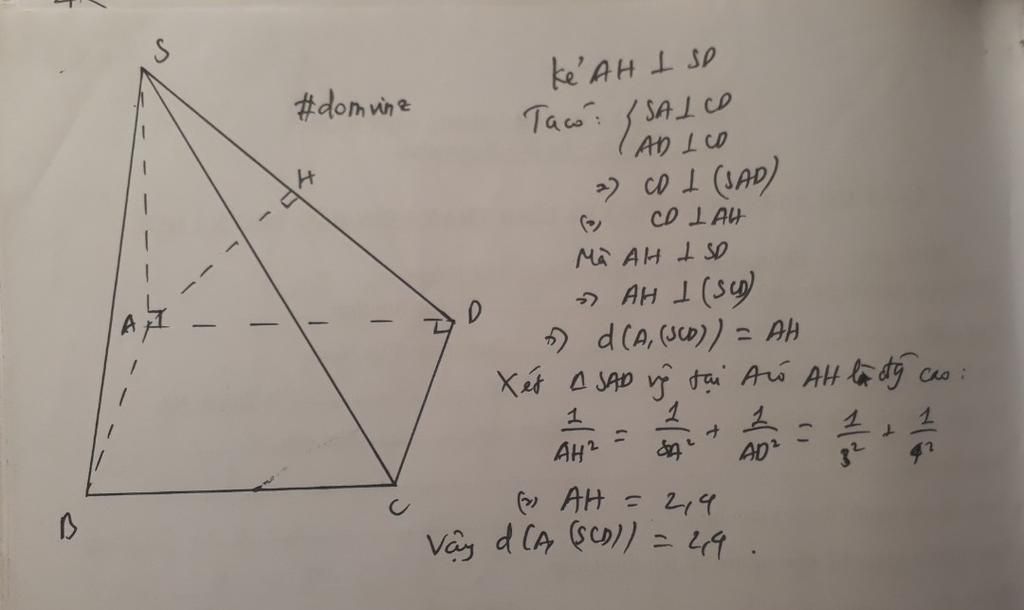 S
#domvinz
H
A
D
B
C
kẻ AH ⊥ SD
Ta có: { SA ⊥ CD
AD ⊥ CD
=> CD ⊥ (SAD)
(=) CD ⊥ AH
Mà AH ⊥ SD
=> AH ⊥ (SCD)
=> d(A,(SCD)) = AH
Xét Δ SAD vg tại A có AH là đg cao:
1/AH² = 1/SA² + 1/AD² = 1/3² + 1/4²
(=) AH = 2,4
Vậy d(A, (SCD)) = 2,4.